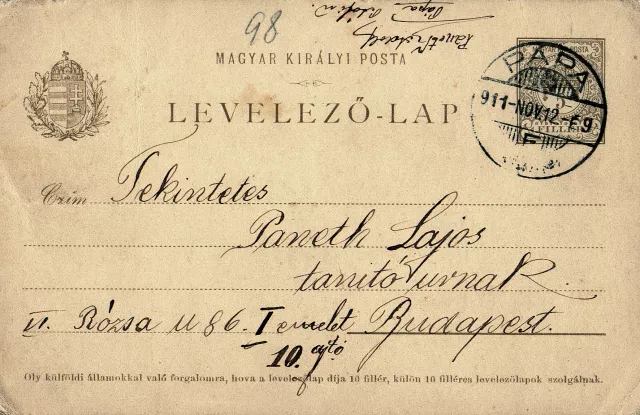 98
MAGYAR KIRÁLYI POSTA
LEVELEZŐ-LAP
MAGYAR KIR. POSTA
FILLÉR
PÁPA
911-NOV.12-É9
F
Czím Tekintetes
Paneth Lajos
tanító urnak
VI. Rózsa u 86. I emelet Budapest.
10. ajtó
Oly külföldi államokkal való forgalomra, hova a levelezőlap díja 10 fillér, külön 10 filléres levelezőlapok szolgálnak.